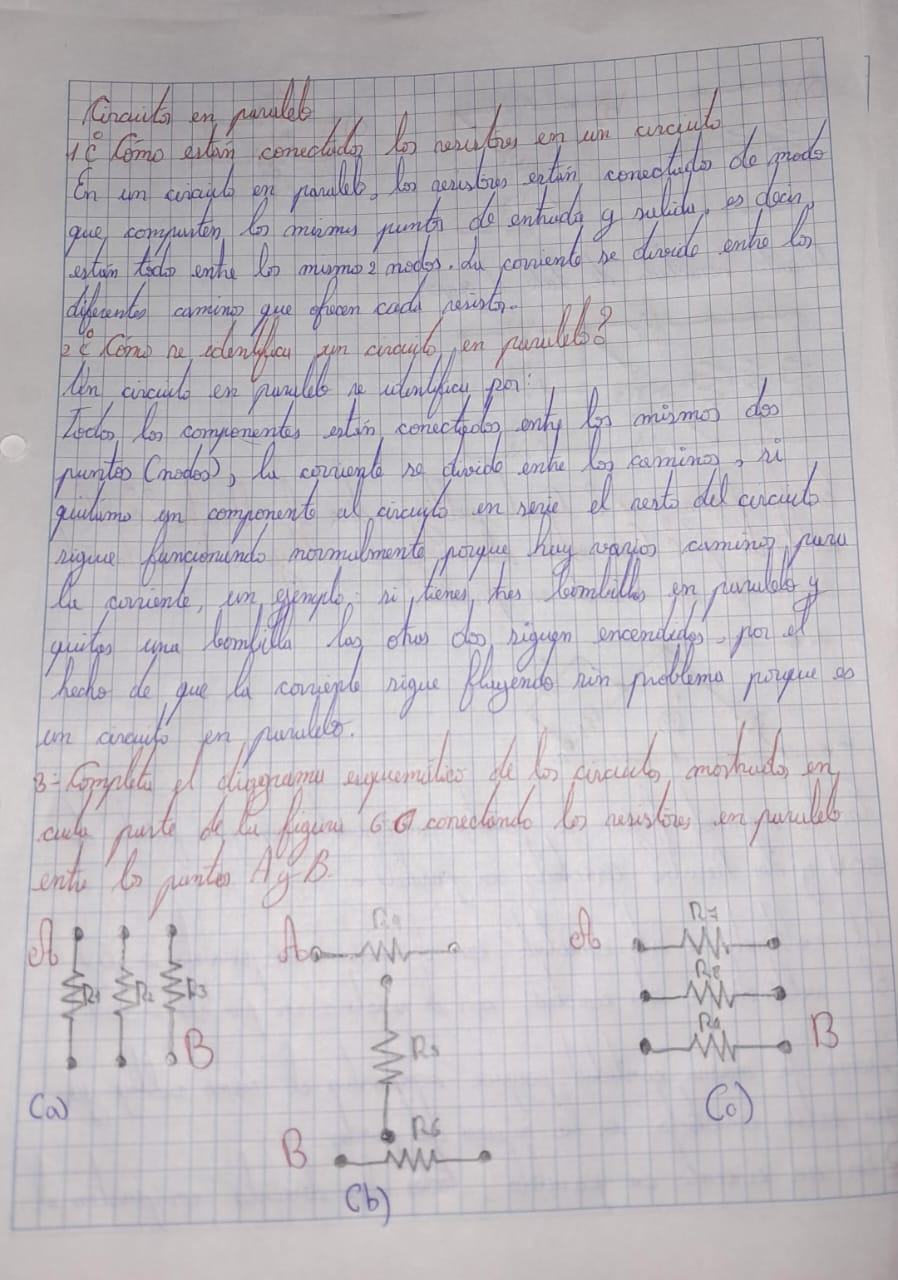 Circuito en paralelo
1 ¿Cómo están conectados los resistores en un circuito
En un circuito en paralelo, los resistores están conectados de modo
que comparten los mismos puntos de entrada y salida, es decir,
están todo entre los mismo 2 nodos. La corriente se divide entre los
diferentes camino que ofrecen cada resistor.
2 ¿Cómo se identifica un circuito en paralelo?
Un circuito en paralelo se identifica por:
Todos los componentes están conectados entre los mismos dos
puntos (nodos), la corriente se divide entre los caminos, si
quitamo un componente al circuito en serie el resto del circuito
sigue funcionando normalmente porque hay varios caminos para
la corriente, un ejemplo: si tienes tres bombillas en paralelo y
quitas una bombilla las otras dos siguen encendidas, por el
hecho de que la corriente sigue fluyendo sin problema porque es
un circuito en paralelo.
3- Completa el diagrama esquemático de los circuitos mostrados en
cada parte de la figura 6 conectando los resistores en paralelo
entre lo puntos A y B.
A R1 R2 R3 B
(a)
A R4
R5
R6
B
(b)
A R7
R8
R9 B
(c)